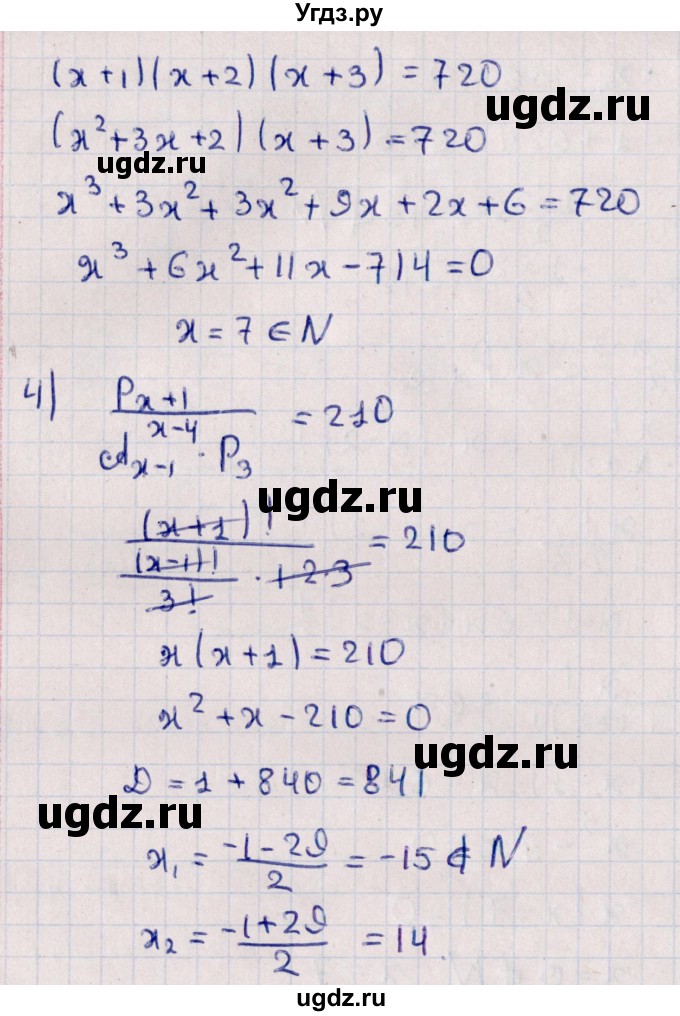 Угдз.ру
(x+1)(x+2)(x+3)=720
ugdz.ru
(x²+3x+2)(x+3)=720
ugdz.ru
x³+3x²+3x²+9x+2x+6=720
x³+6x²+11x-714=0
ugdz.ru
x=7∈N
4) P_{x+1} / (A_{x-1}^{x-4} · P_3) = 210
ugdz.ru
(x+1)! / ((x-1)!/3! · 1·2·3) = 210
x(x+1)=210
x²+x-210=0
ugdz.ru
D=1+840=841
ugdz.ru
x₁ = (-1-29)/2 = -15 ∉ N
x₂ = (-1+29)/2 = 14.
ugdz.ru
ugdz.ru